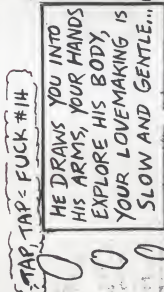 TAP, TAP = FUCK #14
HE DRAWS YOU INTO
HIS ARMS, YOUR HANDS
EXPLORE HIS BODY,
YOUR LOVEMAKING IS
SLOW AND GENTLE...